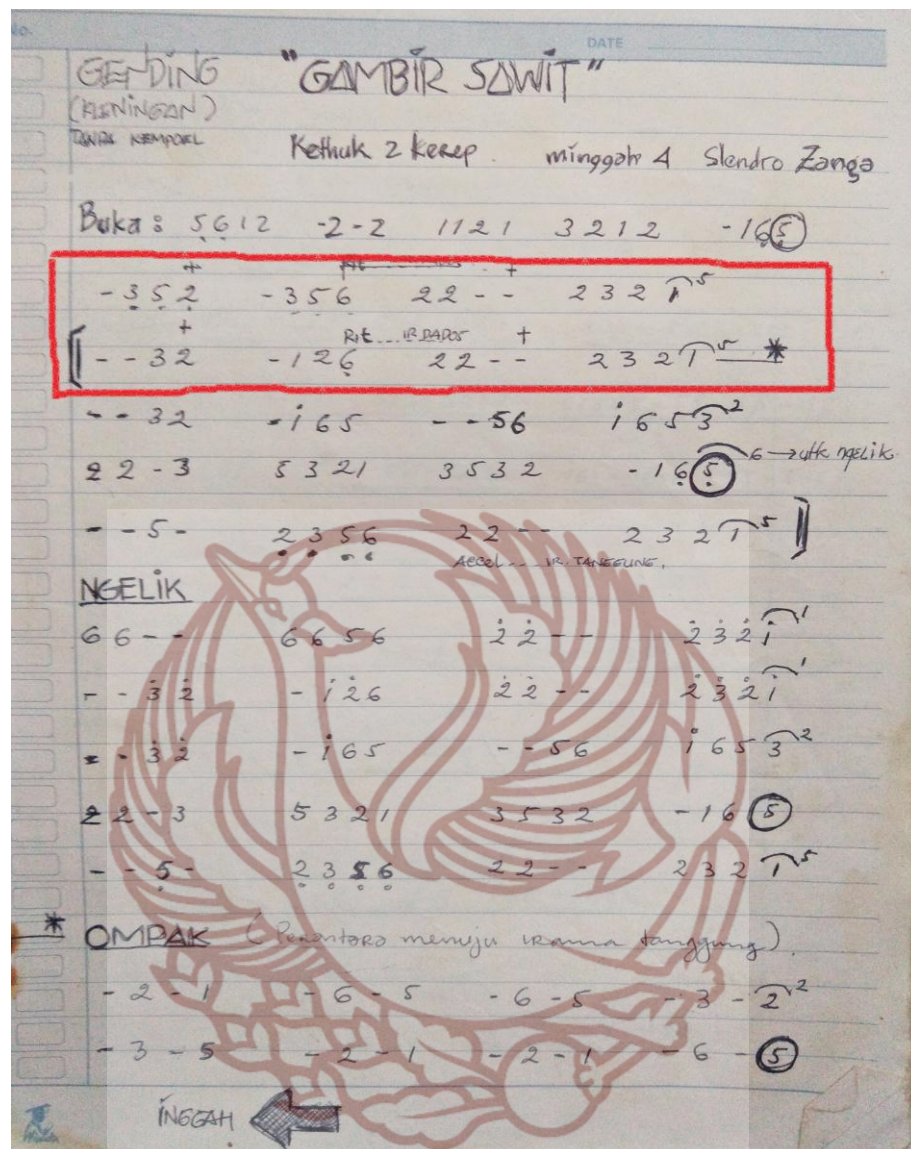 No. DATE
GENDING "GAMBIR SAWIT"
(KLENINGAN)
Kethuk 2 kerep. minggah 4 Slendro Zanga
Buka : 5̣6̣12 -2-2 1121 3212 -16̣(5̣)
+ +
-3̣5̣2̣ -3̣5̣6̣ 22-- 2321 5
+ Rit... IR DADOS +
[--32 -126̣ 22-- 2321 5 *
--32 -i65 --56 i653 2
22-3 5321 3532 -16̣(5̣) 6 → utk ngelik
--5- 2̣3̣5̣6̣ 22-- 2321 5 ]
Accel... IR. TANGGUNG.
NGELIK
66-- 6656 2̇2̇-- 2̇3̇2̇i 1
--3̇2̇ -i2̇6 2̇2̇-- 2̇3̇2̇i 1
--3̇2̇ -i65 --56 i653 2
22-3 5321 3532 -16(5)
--5̣- 2̣3̣5̣6̣ 22-- 2321 5
* OMPAK (Perantara menuju irama tanggung)
-2-1 -6-5 -6-5 -3-2 2
-3-5 -2-1 -2-1 -6-(5)
INGGAH